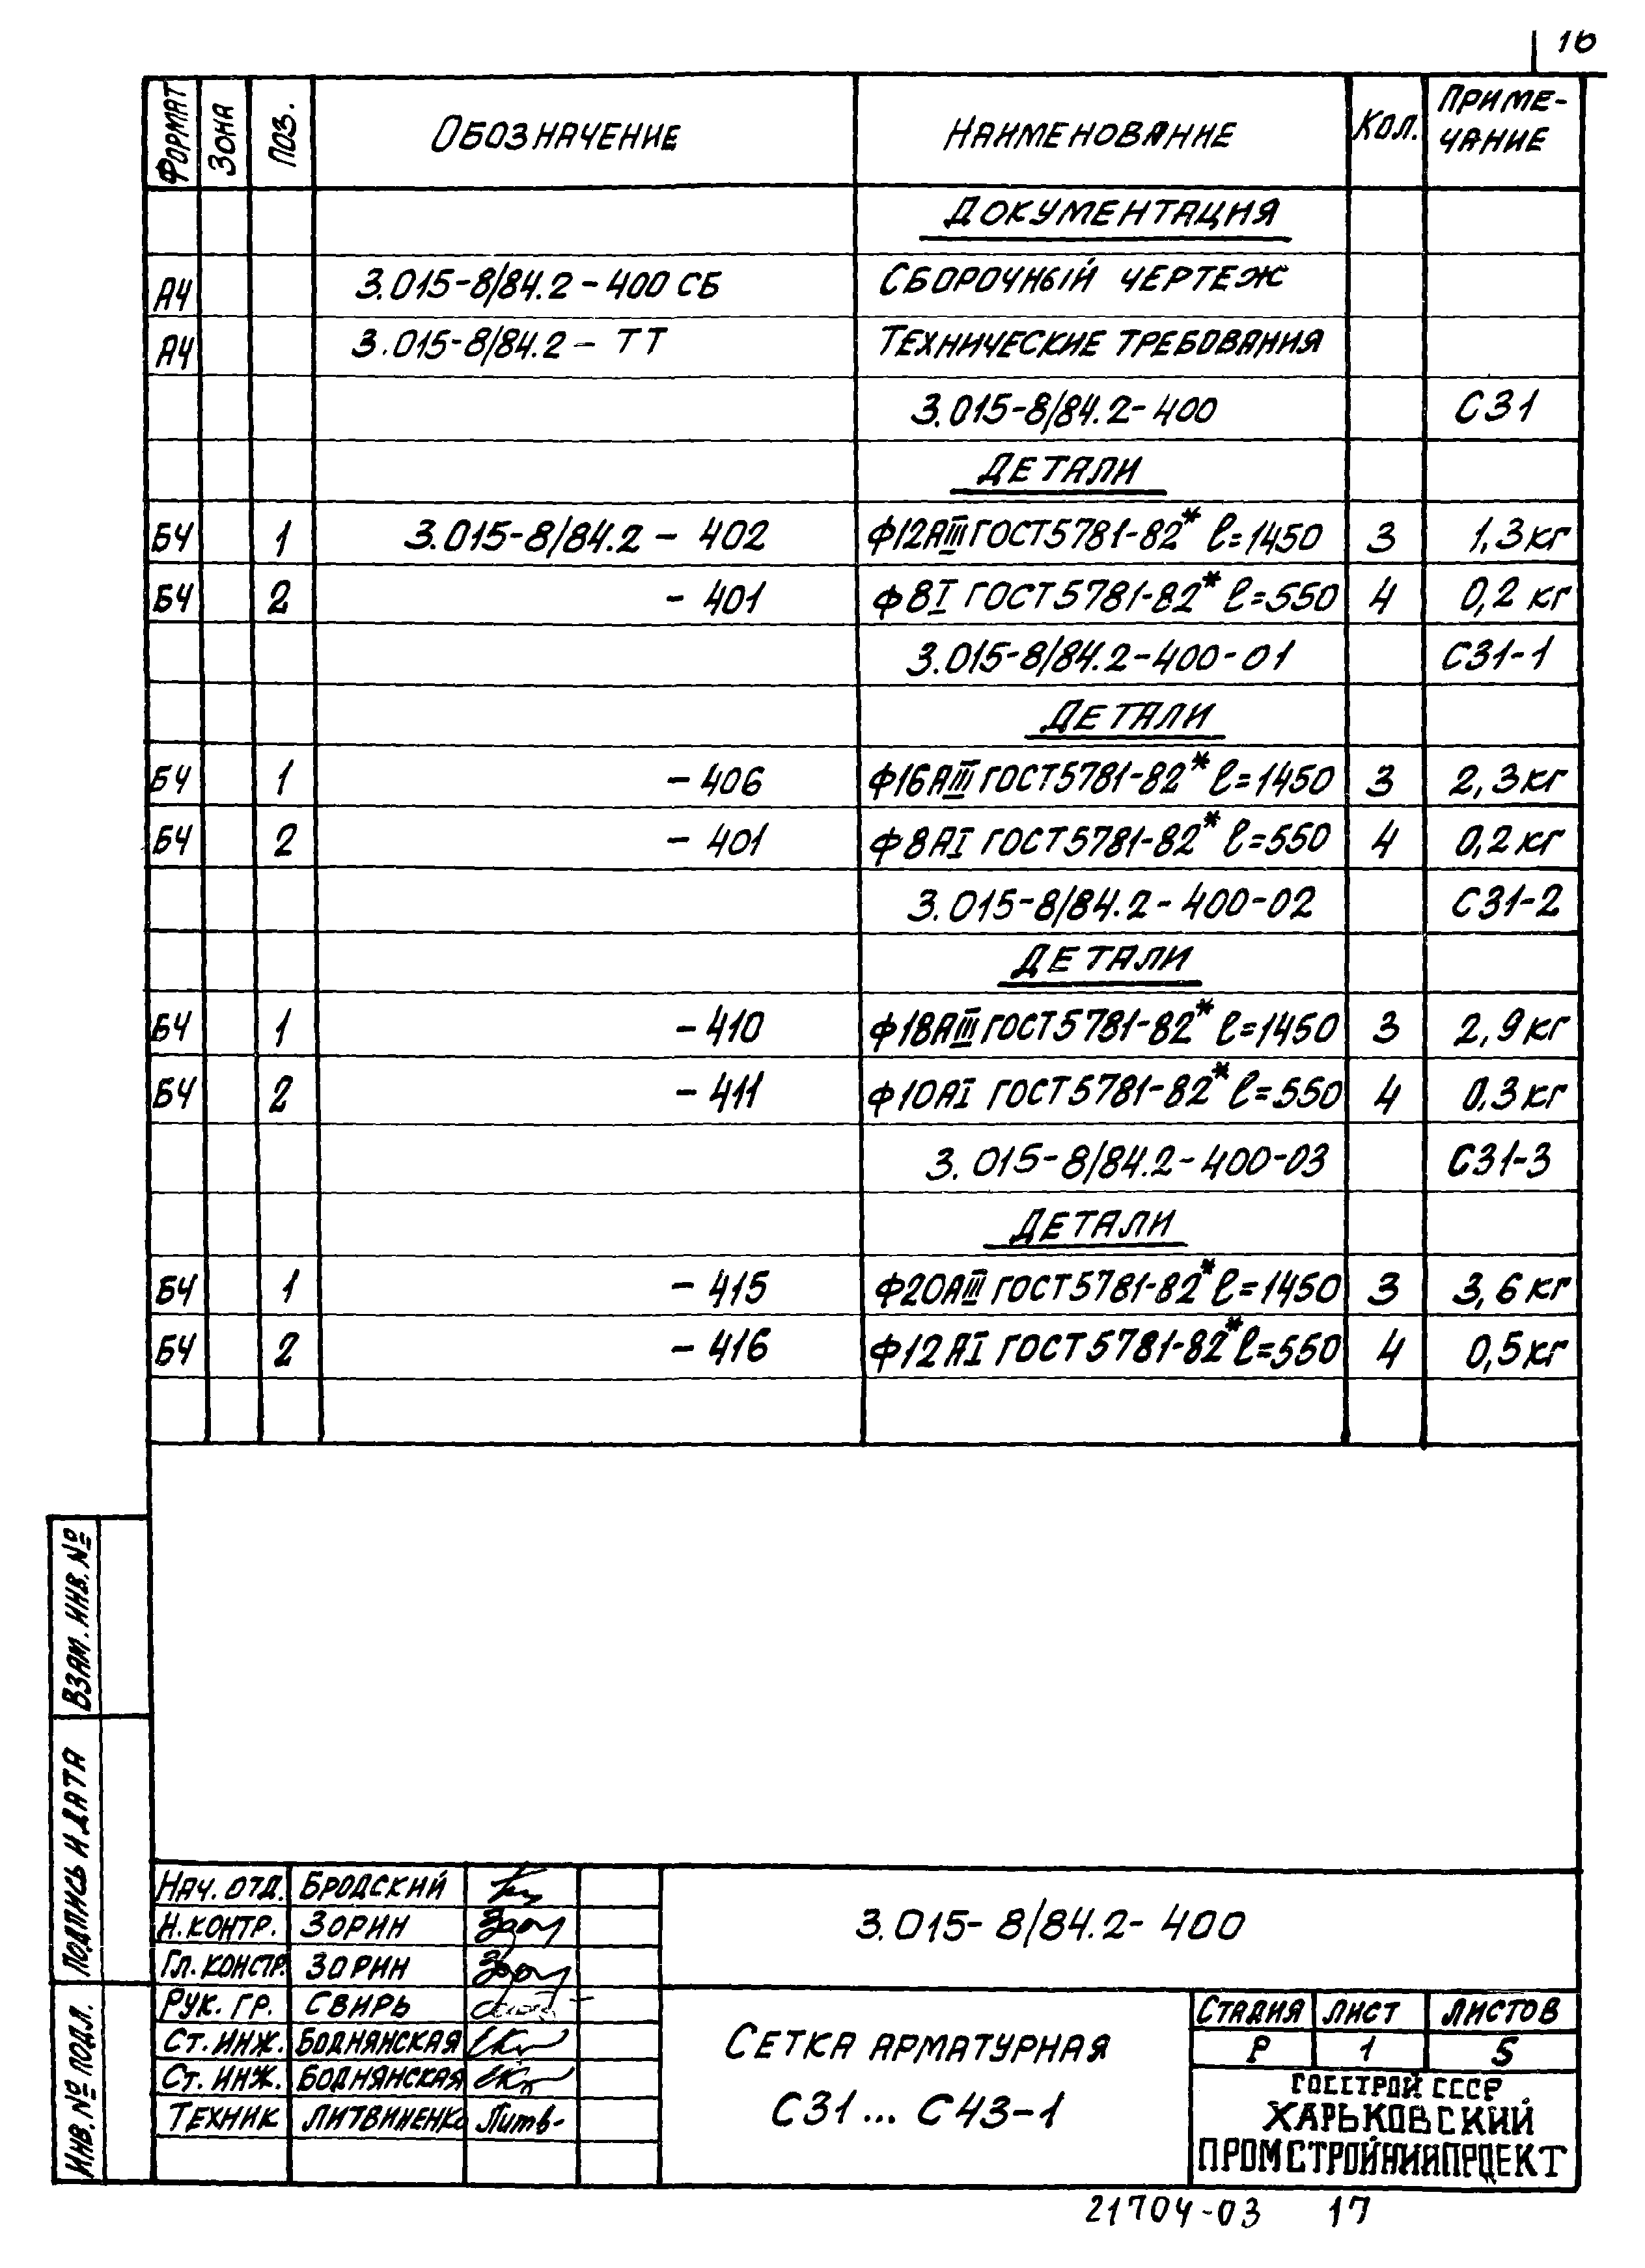 16
Формат Зона Поз. Обозначение Наименование Кол. Приме-
чание
Документация
А4 3.015-8/84.2-400 СБ Сборочный чертеж
А4 3.015-8/84.2-ТТ Технические требования
3.015-8/84.2-400 С31
Детали
БЧ 1 3.015-8/84.2-402 Ф12АIII ГОСТ 5781-82* ℓ=1450 3 1,3 кг
БЧ 2 -401 Ф8I ГОСТ 5781-82* ℓ=550 4 0,2 кг
3.015-8/84.2-400-01 С31-1
Детали
БЧ 1 -406 Ф16АIII ГОСТ 5781-82* ℓ=1450 3 2,3 кг
БЧ 2 -401 Ф8АI ГОСТ 5781-82* ℓ=550 4 0,2 кг
3.015-8/84.2-400-02 С31-2
Детали
БЧ 1 -410 Ф18АIII ГОСТ 5781-82* ℓ=1450 3 2,9 кг
БЧ 2 -411 Ф10АI ГОСТ 5781-82* ℓ=550 4 0,3 кг
3.015-8/84.2-400-03 С31-3
Детали
БЧ 1 -415 Ф20АIII ГОСТ 5781-82* ℓ=1450 3 3,6 кг
БЧ 2 -416 Ф12АI ГОСТ 5781-82* ℓ=550 4 0,5 кг
Взам. инв. №
Подпись и дата
Инв. № подл.
Нач. отд. Бродский
Н. контр. Зорин
Гл. констр. Зорин
Рук. гр. Свирь
Ст. инж. Боднянская
Ст. инж. Боднянская
Техник Литвиненко Литв-
3.015-8/84.2-400
Сетка арматурная
С31... С43-1
Стадия Лист Листов
Р 1 5
Госстрой СССР
Харьковский
Промстройниипроект
21704-03 17